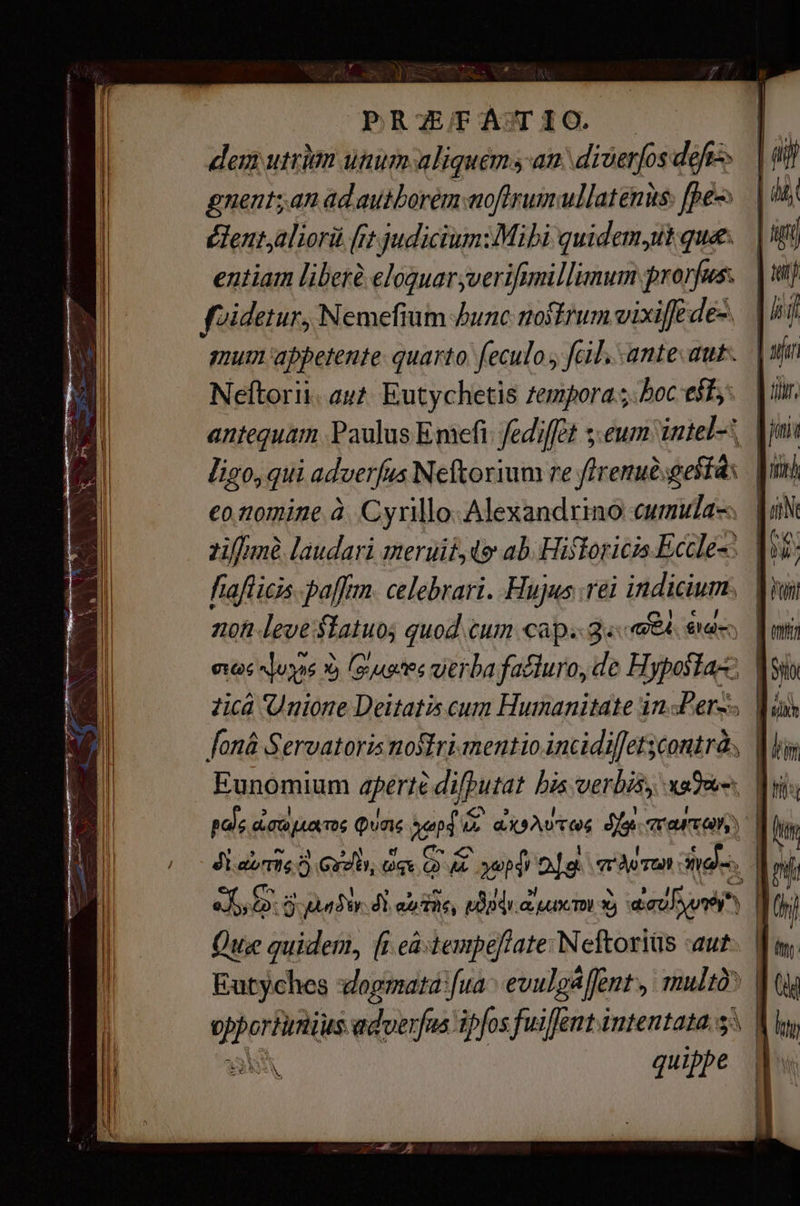 PRÆFATIO.
dem utrùm unum aliquem, an diverſos deſi-
gnent; an ad authorem noſtrum ullatenùs ſpe-
ctent, aliorū ſit judicium: Mihi quidem, ut quæ
entiam liberè eloquar, veriſimillimum prorſus
ſvidetur, Nemeſium hunc noſtrum vixiſſe de-
mum appetente quarto ſeculo, ſcil. ante aut
Neſtorii. aut Eutychetis tempora; hoc eſt,
antequam Paulus Emeſi ſediſſet; eum intel-
ligo, qui adverſus Neſtorium re ſtrenuè geſtâ
eo nomine à Cyrillo Alexandrino cumula-
tiſſimè laudari meruit, & ab Hiſtoricis Eccle-
ſiaſticis paſſim celebrari. Hujus rei indicium
non leve ſtatuo, quod cum cap. 3. περὶ ἑνώ-
σεως ψυχῆς ϗ σώματος verba facturo, de Hypoſta-
ticâ Unione Deitatis cum Humanitate in Per-
ſonâ Servatoris noſtri mentio incidiſſet; contrà
Eunomium apertè diſputat his verbis, καθα-
ρᾶς ἀσώματος φύσις χωρεῖ ἀκωλύτως διὰ πάντων,
δι᾽ αὐτῆς ὃ οὐδὲν, ὥστε τῷ χωρεῖν διὰ πάντων
μηδὲν δι᾽ αὐτῆς, ἄμικτον ϗ ἀσύγχυτον
Quæ quidem, ſi eâ tempeſtate Neſtorius aut
Eutyches dogmata ſua evulgâſſent, multò
opportuniùs adverſus ipſos fuiſſent intentata;
quippe